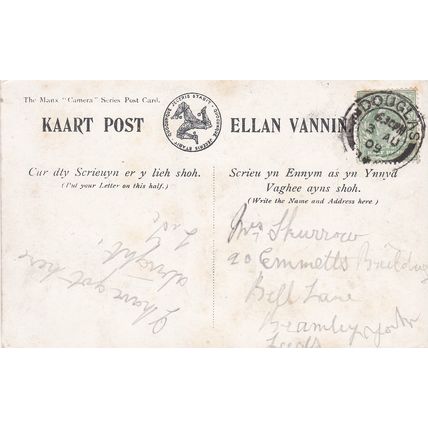 The Manx "Camera" Series Post Card.
QUOCUNQUE JECERIS STABIT · QUOCUNQUE JECERIS STABIT
KAART POST
ELLAN VANNIN
DOUGLAS
JU
09
Cur dty Scrieuyn er y lieh shoh.
(Put your Letter on this half.)
I have got here
alright.
Scrieu yn Ennym as yn Ynnyd
Vaghee ayns shoh.
(Write the Name and Address here)
Mrs Skurrow
20 Emmetts Building
Bell Lane
Bramley
Leeds